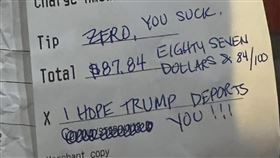 Charge
Tip ZERO, YOU SUCK.
Total $87.84 EIGHTY SEVEN
DOLLARS & 84/100
X I HOPE TRUMP DEPORTS
YOU!!!
Merchant copy